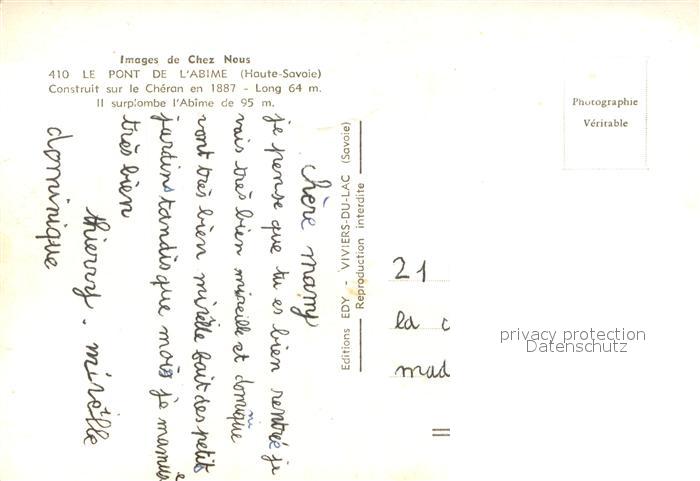 Images de Chez Nous
410 LE PONT DE L'ABIME (Haute-Savoie)
Construit sur le Chéran en 1887 - Long 64 m.
Il surplombe l'Abîme de 95 m.
chère mamy
je pense que tu es bien rentrée je
vais très bien mireille et domique
ni
vont très bien mirèlle fait des petit
jardins tandis que mois je mamus
e
très bien
thierry. mirèlle
dominique
Editions EDY - VIVIERS-DU-LAC (Savoie)
Reproduction interdite
Photographie
Véritable
21
la c
mad
privacy protection
Datenschutz